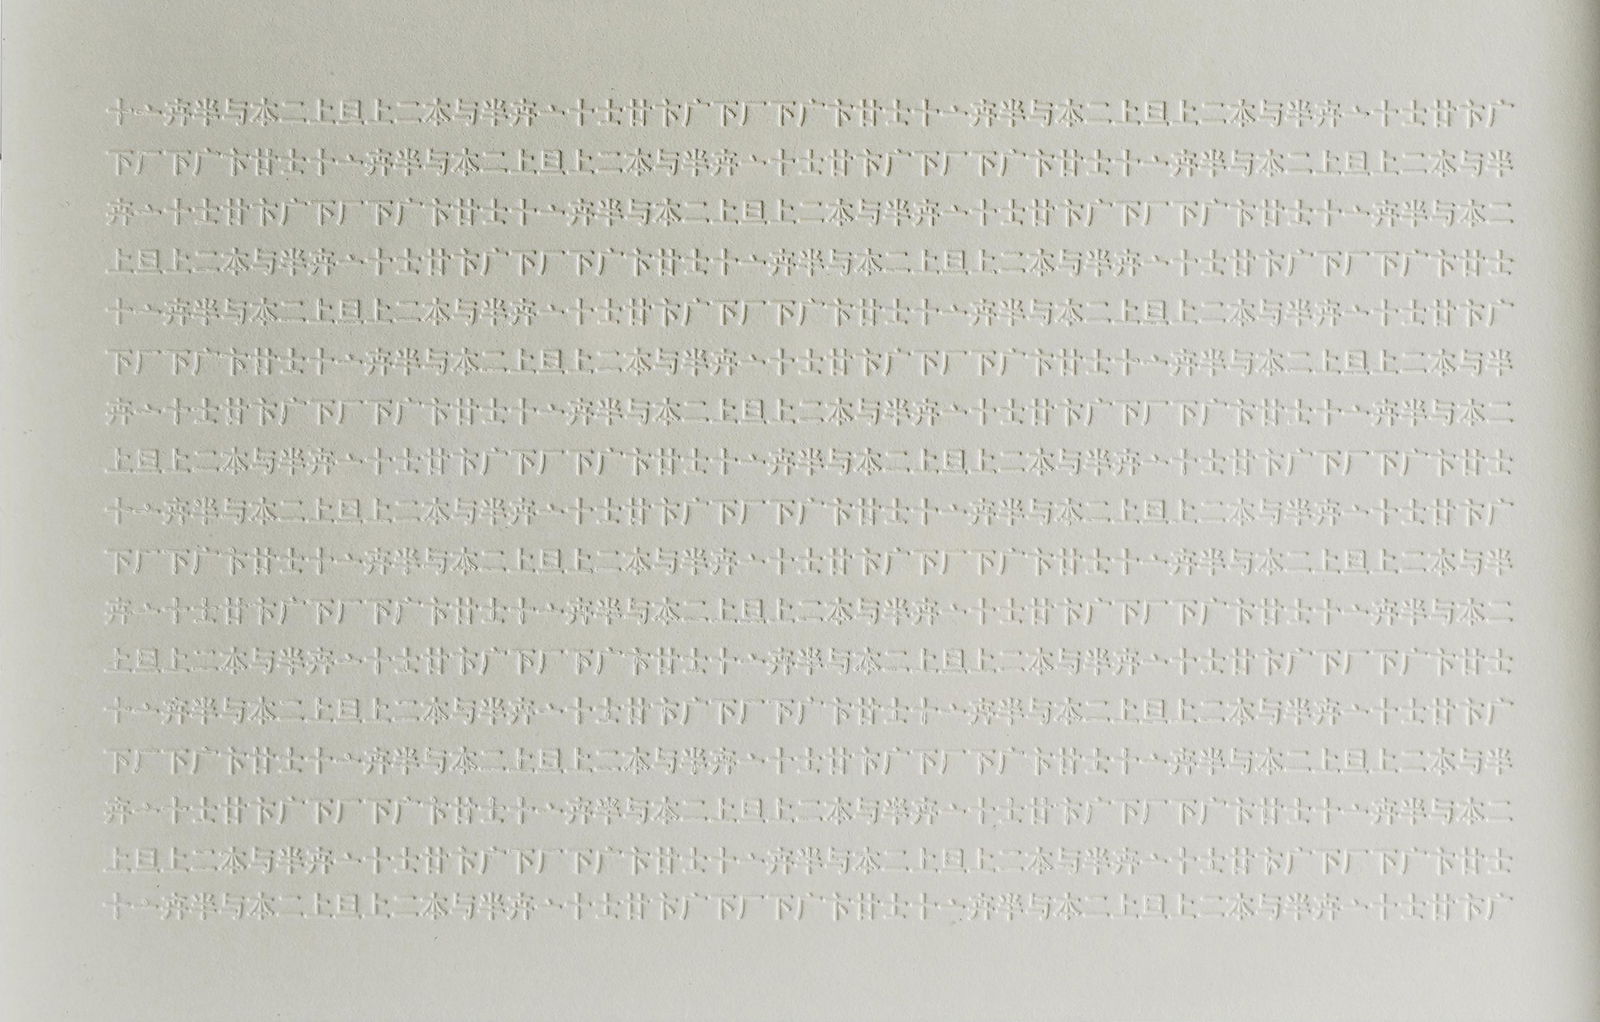 十亠奔半与本二上旦上二本与半奔亠十士廿卞广下厂下广卞廿士十亠奔半与本二上旦上二本与半奔亠十士廿卞广
下厂下广卞廿士十亠奔半与本二上旦上二本与半奔亠十士廿卞广下厂下广卞廿士十亠奔半与本二上旦上二本与半
奔亠十士廿卞广下厂下广卞廿士十亠奔半与本二上旦上二本与半奔亠十士廿卞广下厂下广卞廿士十亠奔半与本二
上旦上二本与半奔亠十士廿卞广下厂下广卞廿士十亠奔半与本二上旦上二本与半奔亠十士廿卞广下厂下广卞廿士
十亠奔半与本二上旦上二本与半奔亠十士廿卞广下厂下广卞廿士十亠奔半与本二上旦上二本与半奔亠十士廿卞广
下厂下广卞廿士十亠奔半与本二上旦上二本与半奔亠十士廿卞广下厂下广卞廿士十亠奔半与本二上旦上二本与半
奔亠十士廿卞广下厂下广卞廿士十亠奔半与本二上旦上二本与半奔亠十士廿卞广下厂下广卞廿士十亠奔半与本二
上旦上二本与半奔亠十士廿卞广下厂下广卞廿士十亠奔半与本二上旦上二本与半奔亠十士廿卞广下厂下广卞廿士
十亠奔半与本二上旦上二本与半奔亠十士廿卞广下厂下广卞廿士十亠奔半与本二上旦上二本与半奔亠十士廿卞广
下厂下广卞廿士十亠奔半与本二上旦上二本与半奔亠十士廿卞广下厂下广卞廿士十亠奔半与本二上旦上二本与半
奔亠十士廿卞广下厂下广卞廿士十亠奔半与本二上旦上二本与半奔亠十士廿卞广下厂下广卞廿士十亠奔半与本二
上旦上二本与半奔亠十士廿卞广下厂下广卞廿士十亠奔半与本二上旦上二本与半奔亠十士廿卞广下厂下广卞廿士
十亠奔半与本二上旦上二本与半奔亠十士廿卞广下厂下广卞廿士十亠奔半与本二上旦上二本与半奔亠十士廿卞广
下厂下广卞廿士十亠奔半与本二上旦上二本与半奔亠十士廿卞广下厂下广卞廿士十亠奔半与本二上旦上二本与半
奔亠十士廿卞广下厂下广卞廿士十亠奔半与本二上旦上二本与半奔亠十士廿卞广下厂下广卞廿士十亠奔半与本二
上旦上二本与半奔亠十士廿卞广下厂下广卞廿士十亠奔半与本二上旦上二本与半奔亠十士廿卞广下厂下广卞廿士
十亠奔半与本二上旦上二本与半奔亠十士廿卞广下厂下广卞廿士十亠奔半与本二上旦上二本与半奔亠十士廿卞广